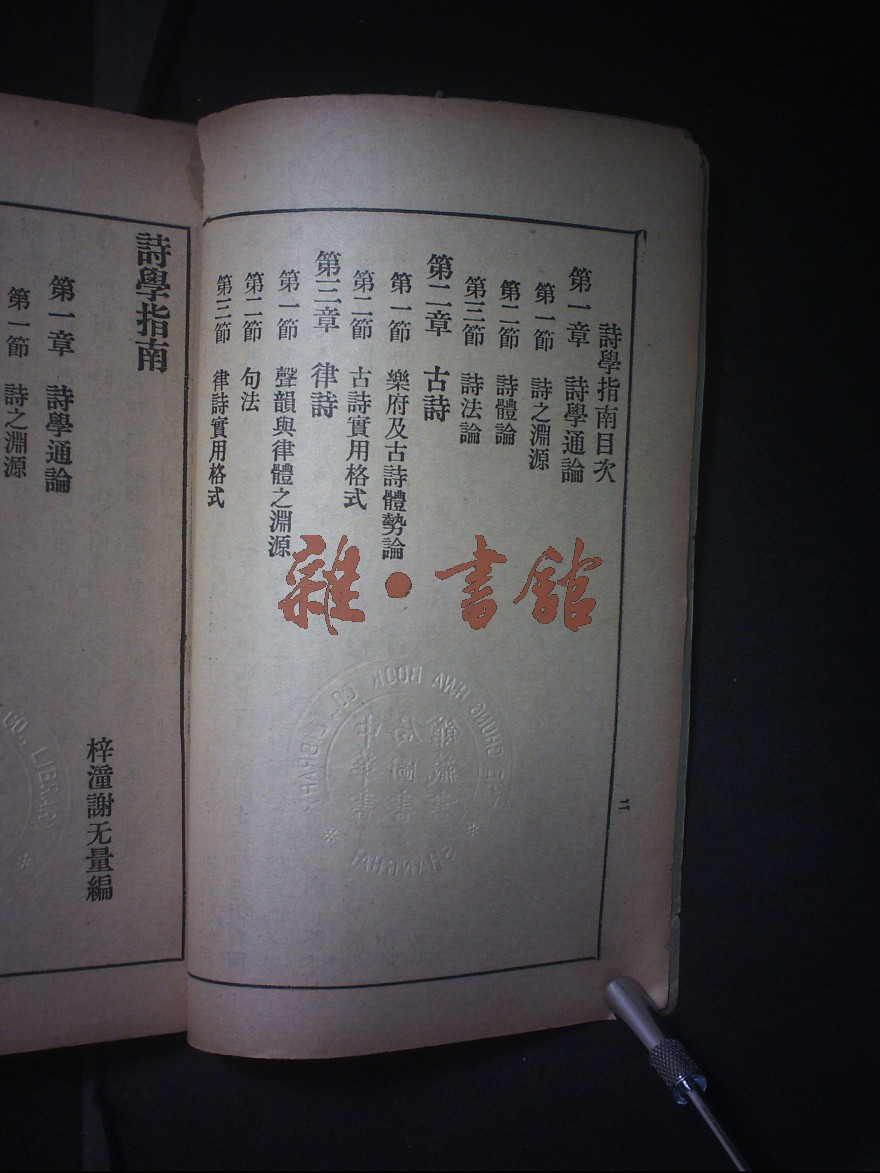 詩學指南目次
第一章 詩學通論
第一節 詩之淵源
第二節 詩體論
第三節 詩法論
第二章 古詩
第一節 樂府及古詩體勢論
第二節 古詩實用格式
第三章 律詩
第一節 聲韻與律體之淵源
第二節 句法
第三節 律詩實用格式
二
雜·書館
CHUNG HWA BOOK CO., LIBRARY
中華書
局圖書
館藏書
SHANGHAI
詩學指南
梓潼謝无量編
第一章 詩學通論
第一節 詩之淵源
CO., LIBRARY